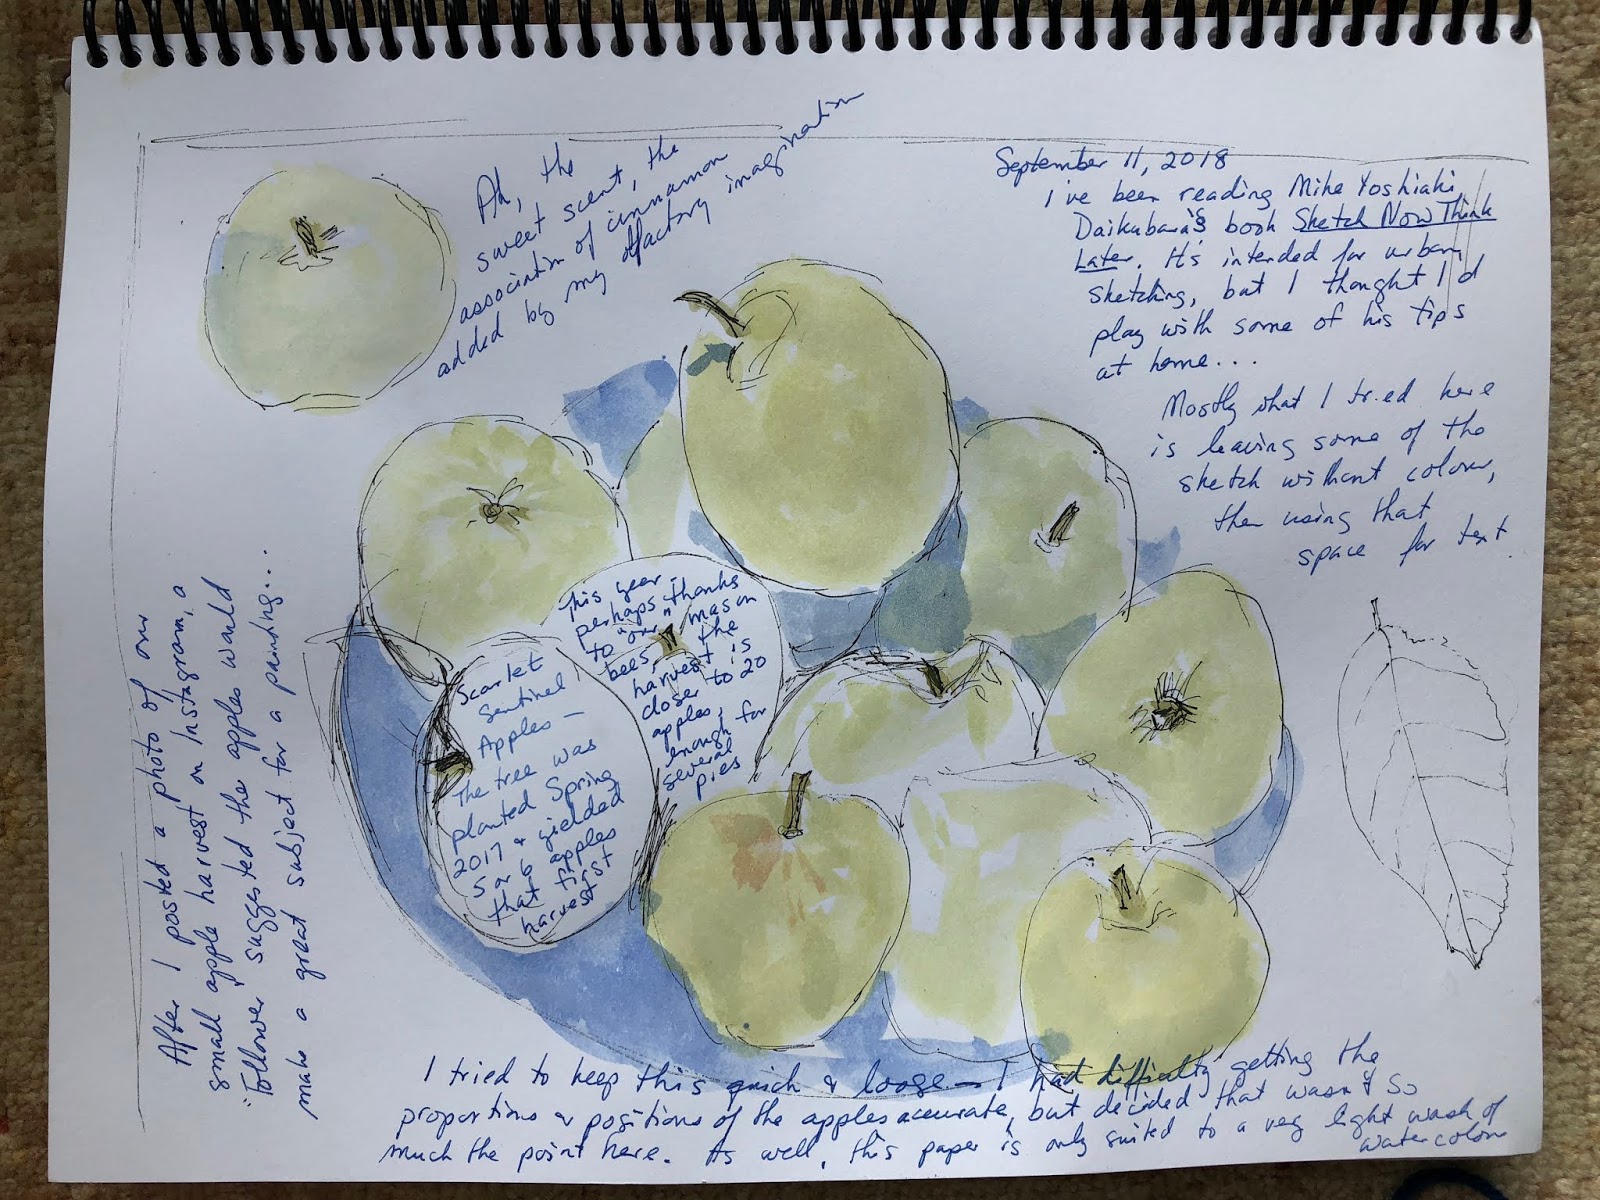 September 11, 2018
I've been reading Mike Yoshiaki
Daikubara's book Sketch Now Think
Later. It's intended for urban
sketching, but I thought I'd
play with some of his tips
at home...
Mostly what I tried here
is leaving some of the
sketch without colour,
then using that
space for text
Ah, the
sweet scent, the
association of cinnamon
added by my olfactory imagination
This year
perhaps thanks
to "our" mason
bees, the
harvest is
closer to 20
apples,
enough for
several
pies
Scarlet
Sentinel
Apples —
The tree was
planted Spring
2017 & yielded
5 or 6 apples
that first
harvest
After I posted a photo of our
small apple harvest on Instagram, a
"follower" suggested the apples would
make a great subject for a painting...
I tried to keep this quick & loose — I had difficulty getting the
proportions & positions of the apples accurate, but decided that wasn't so
much the point here. As well, this paper is only suited to a very light wash of
watercolour